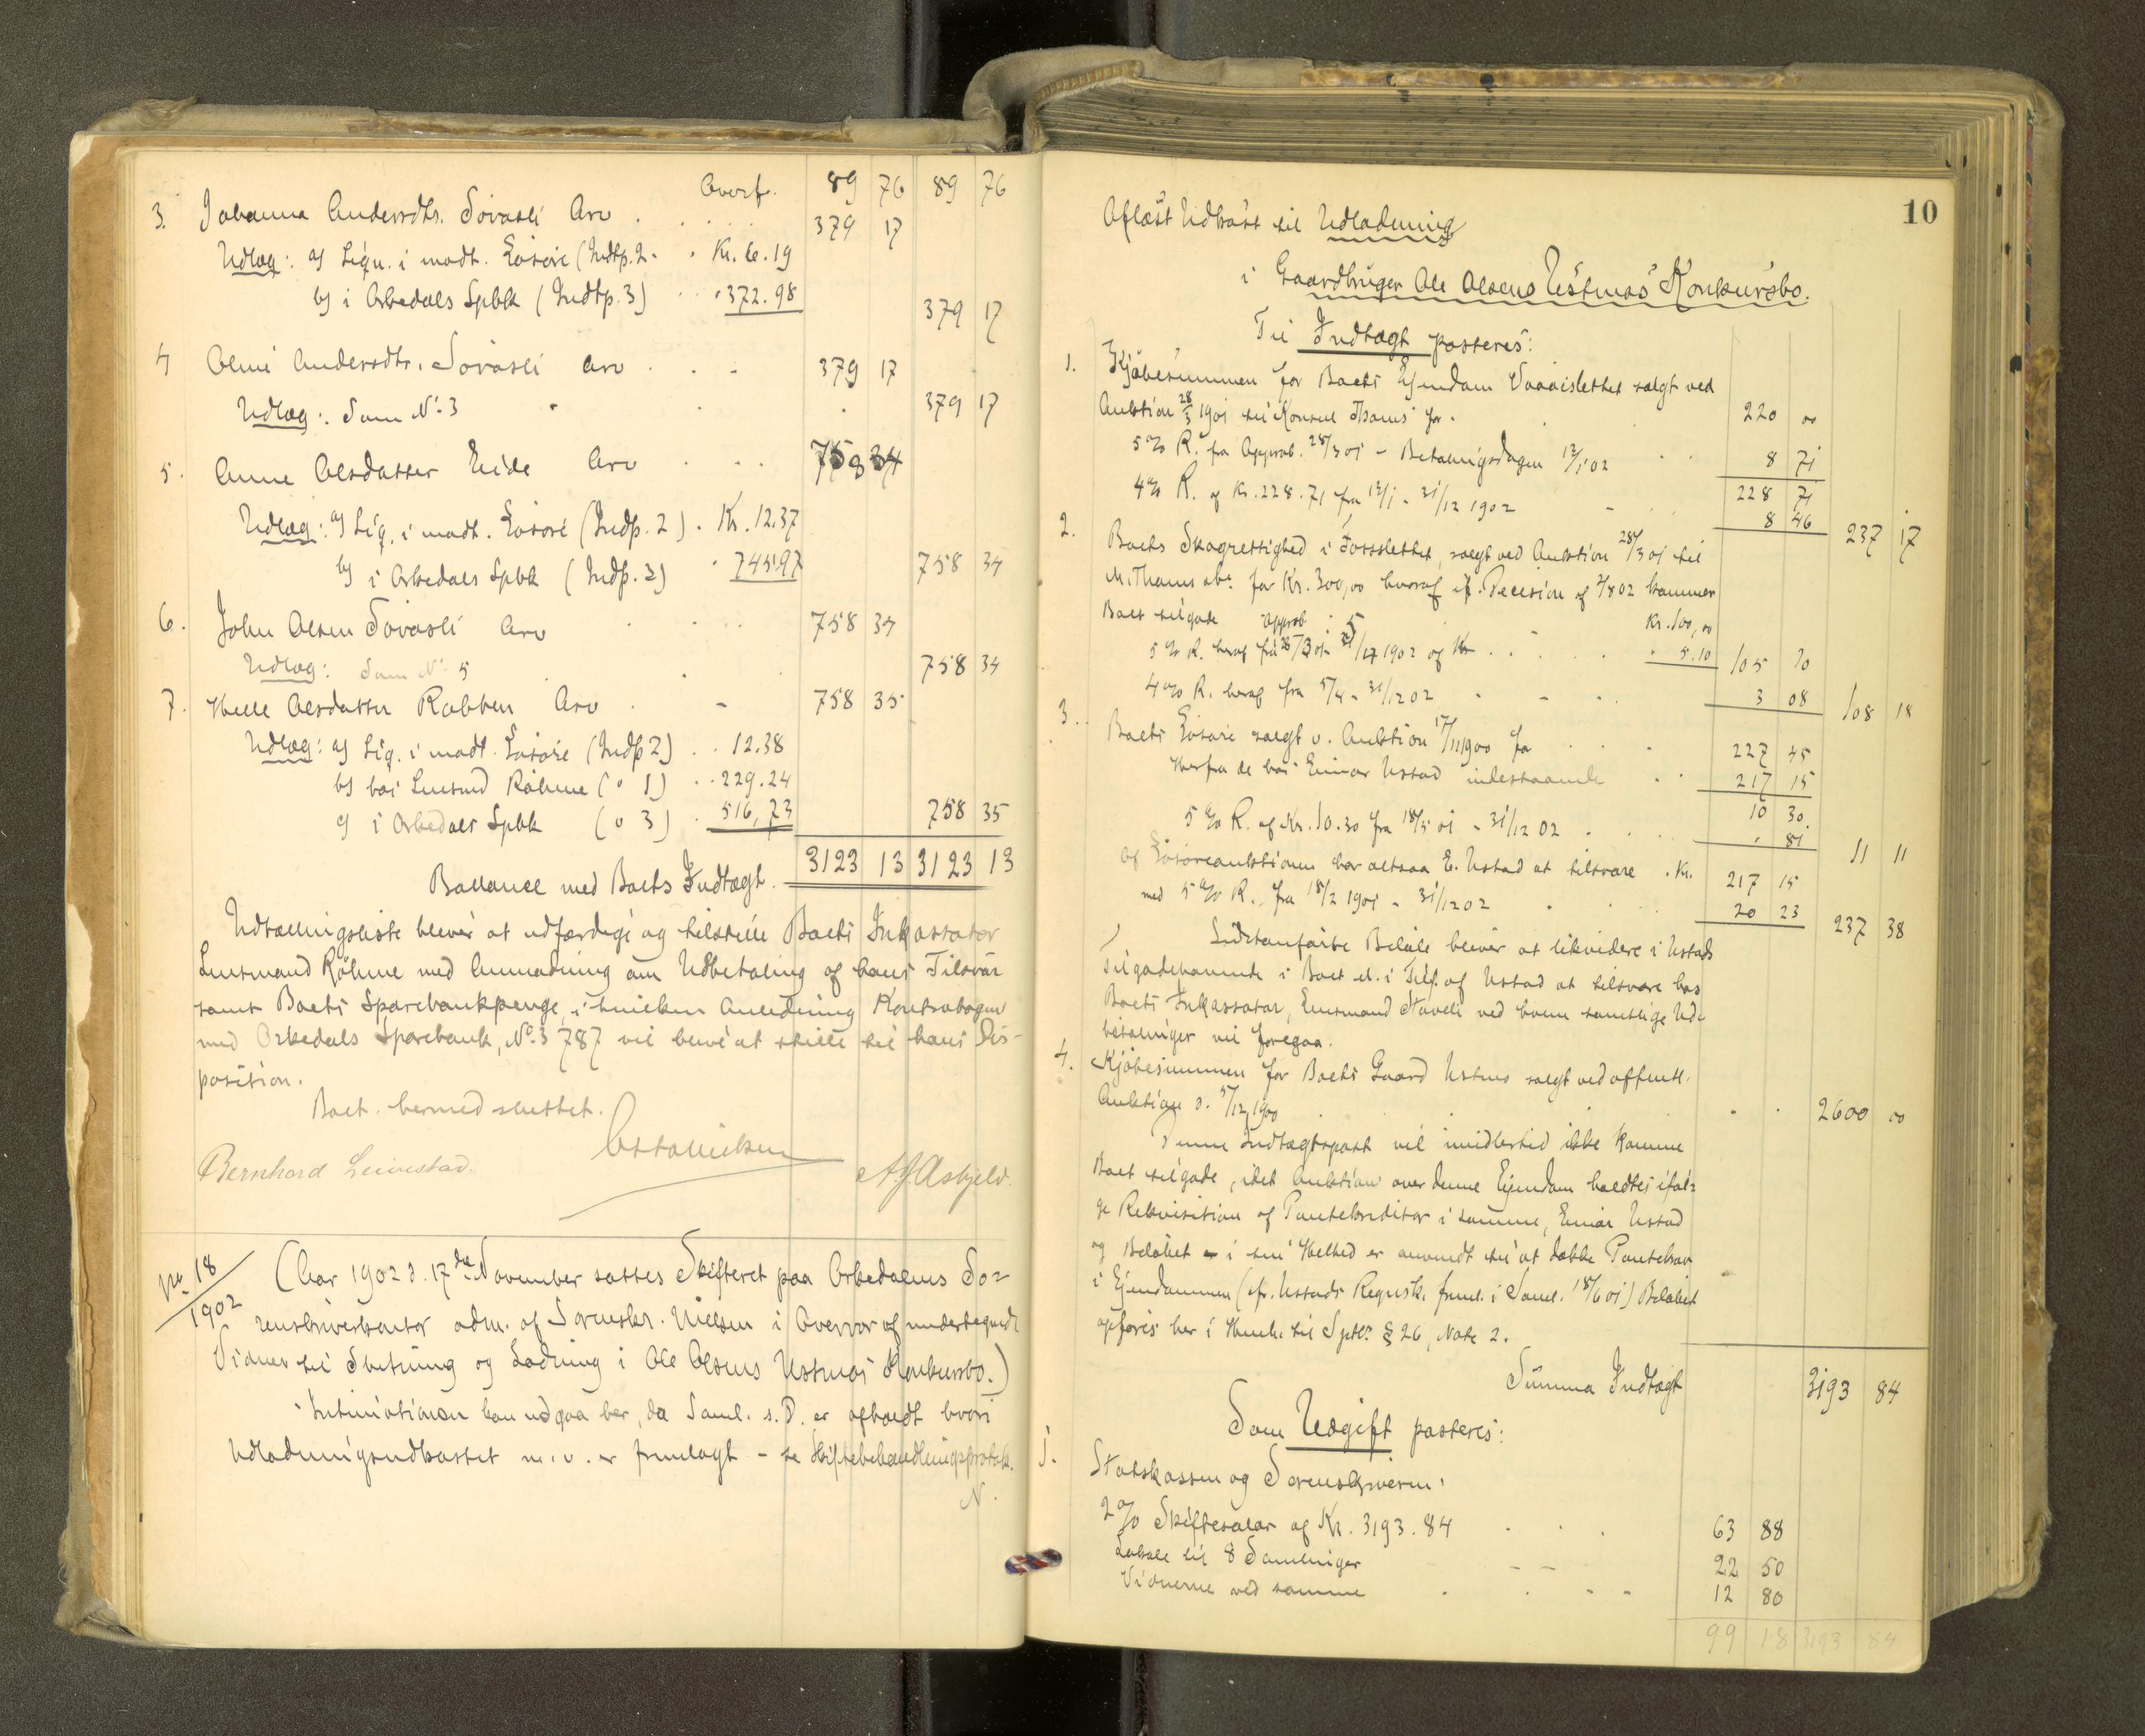 Overf. 89 76 89 76
3. Johanna Andersdtr. Sovasli Arv . . . . 379 17
Udlæg: a) Liqu. i modt. Løsøre (Indtp. 2 - . Kr. 6.19
b) i Orkedals Spbk (Indtp. 3) . . " 372.98 379 17
4 Olini Andersdtr. Sovasli Arv . . - 379 17
Udlæg: Som No 3 . . . 379 17
5. Anne Olesdatter Eide Arv . . . 758 34
Udlæg: a) Liq. i modt. Løsøre (Indtp. 2) . Kr. 12.37
b) i Orkedals Spbk (Indtp. 3) " 745.97 758 34
6. John Olsen Sovasli Arv . . . . 758 34
Udlæg: Som No 5 . . . 758 34
7. Olesdatter Rabben Arv . - 758 35
Udlæg: a) Liq. i modt. Løsøre (Indtp 2) . . 12.38
b) hos Lensmd Röhme ( " 1) . . 229.24
c) i Orkedals Spbk ( " 3) . 516,73 758 35
Ballance med Boets Indtægt. 3123 13 3123 13
Udtællingsliste bliver at udfærdige og tilstille Boets Inkassator
Lensmand Röhme med Anmodning om Udbetaling af hans Tilsvar
samt Boets Sparebankpenge, i hvilken Anledning Kontrabogen
med Orkedals Sparebank, No 3787 vil blive at stille til hans Dis-
position.
Boet hermed sluttet.
Bernhard Leinestad. A. J. Asbjeld.
No 18/1902 (Aar 1902 d. 17de November sattes Skifteret paa Orkedalens So-
renskriverkontor adm. af Sorenskr. Nielsen i Overvær af undertegnede
Vidner til Slutning og Lodning i Ole Olsens Ustmos Konkursbo.)
Intimationen kan udgaa her, da Saml. s. D. er afholdt hvori
Udlodningsudkastet m. v. er fremlagt - se Skiftebehandlingsprotok.
N.
10
Oplæst Udkast til Udlodning
i Gaardbruger Ole Olsens Ustmos Konkursbo.
Til Indtægt posteres:
1. Kjøbesummen for Boets Ejendom solgt ved
Auktion 28/3 1901 til Konsul Thams for . . 220 00
5 % R. fra Approb. 28/3 01 - Betalingsdagen 12/1 02 . . 8 71
228 71
4 % R. af Kr. 228.71 fra 12/1 - 31/12 1902 - . . 8 46 237 17
2. Boets Skogrettighed i Fossslettet, solgt ved Auktion 28/3 01 til
M. Thams & Co for Kr. 300,00 hvoraf if. Decision af 2/8 02 kommer
Boet tilgode Kr. 100,00
Approb.
5 % R. heraf fra 28/3 01 1902 af Kr . . . . " 5.10 105 10
4 % R. heraf fra 5/4 - 31/12 02 . - - 3 08 108 18
3. Boets Løsøre solgt v. Auktion 17/11 1900 for . . - 227 45
Herfra de hos Einar Ustad indestaaende . . 217 15
10 30
5 % R. af Kr. 10.30 fra 18/5 01 - 31/12 02 . . . " 81 11 11
Af Løsøreauktionen har altsaa E. Ustad at tilsvare . Kr. 217 15
med 5 % R. fra 18/2 1901 - 31/12 02 . . . 20 23 237 38
Sidstanførte Beløb bliver at likvidere i Ustads
Tilgodehavende i Boet el. i Tilf. af Ustad at tilsvare hos
Boets Inkassator, Lensmand Staveli ved hvem samtlige Ud-
betalinger vil foregaa.
4. Kjøbesummen for Boets Gaard Ustmo solgt ved offentl.
Auktion d. 5/12 1900 . . . . 2600 00
Denne Indtægtspost vil imidlertid ikke komme
Boet tilgode, idet Auktion over denne Ejendom holdtes iføl-
ge Rekvisition af Pantekreditor i samme, Einar Ustad
og Beløbet i sin Helhed er anvendt til at dække Pantekrav
i Ejendommen (cfr. Ustads Regnsk. freml. i Saml. 18/6 01) Beløbet
opføres her i Henh. til Sptl. § 26, Note 2.
Summa Indtægt 3193 84
Som Udgift posteres:
1. Statskassen og Sorenskriveren:
2 % Skiftesalær af Kr. 3193.84 . . . 63 88
Lokale til 8 Samlinger - - 22 50
Vidnerne ved samme . . - - 12 80
99 18 3193 84